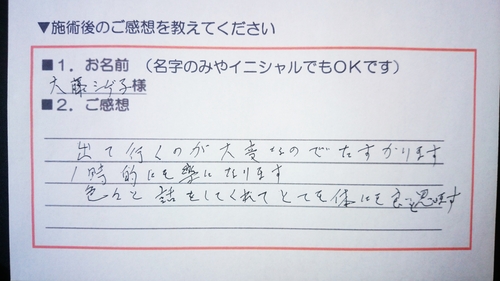 ▼施術後のご感想を教えてください
■1. お名前 （名字のみやイニシャルでもOKです）
大藤シゲ子様
■2. ご感想
出て行くのが大変なのでたすかります
1時的にも楽になります
色々と話をしてくれてとても体にも良いと思います